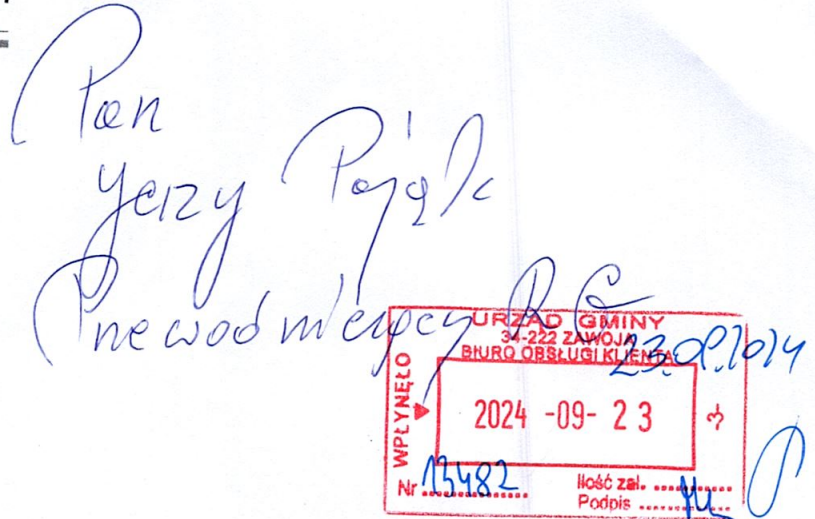 Pan
Jerzy Pająk
Przewodniczący R G
23.09.2024
URZĄD GMINY
34-222 ZAWOJA
BIURO OBSŁUGI KLIENTA
WPŁYNĘŁO
2024 -09- 23
-3-
Nr 13482
Ilość zał.
Podpis